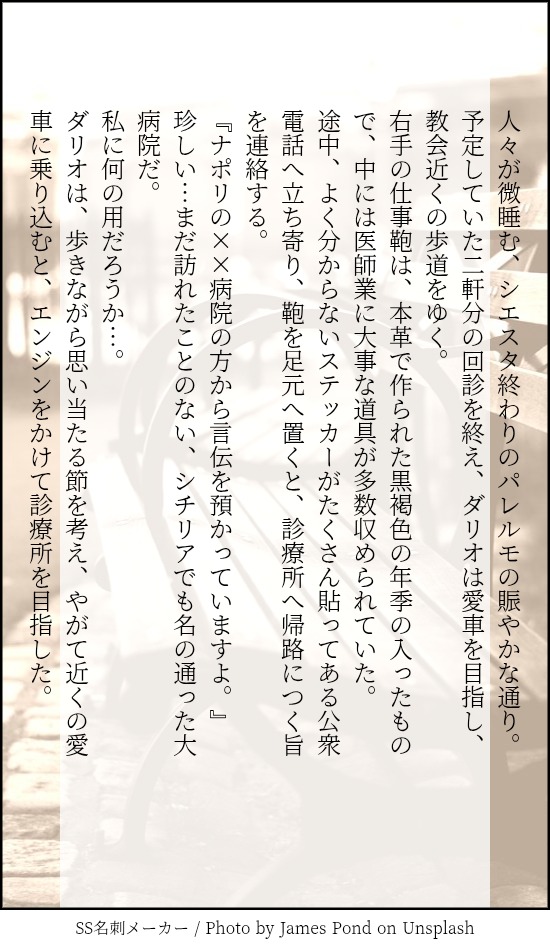 人々が微睡む、シエスタ終わりのパレルモの賑やかな通り。
予定していた二軒分の回診を終え、ダリオは愛車を目指し、
教会近くの歩道をゆく。
右手の仕事鞄は、本革で作られた黒褐色の年季の入ったもの
で、中には医師業に大事な道具が多数収められていた。
途中、よく分からないステッカーがたくさん貼ってある公衆
電話へ立ち寄り、鞄を足元へ置くと、診療所へ帰路につく旨
を連絡する。
『ナポリの××病院の方から言伝を預かっていますよ。』
珍しい…まだ訪れたことのない、シチリアでも名の通った大
病院だ。
私に何の用だろうか…。
ダリオは、歩きながら思い当たる節を考え、やがて近くの愛
車に乗り込むと、エンジンをかけて診療所を目指した。
SS名刺メーカー / Photo by James Pond on Unsplash